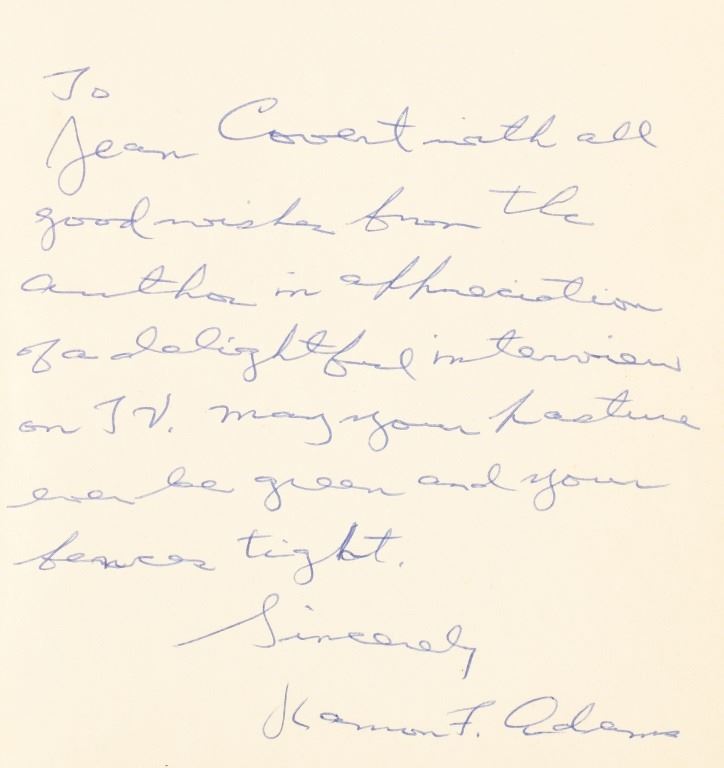 To
Jean Covert with all
good wishes from the
author in appreciation
of a delightful interview
on TV. May your pasture
ever be green and your
fences tight.
Sincerely
Ramon F. Adams